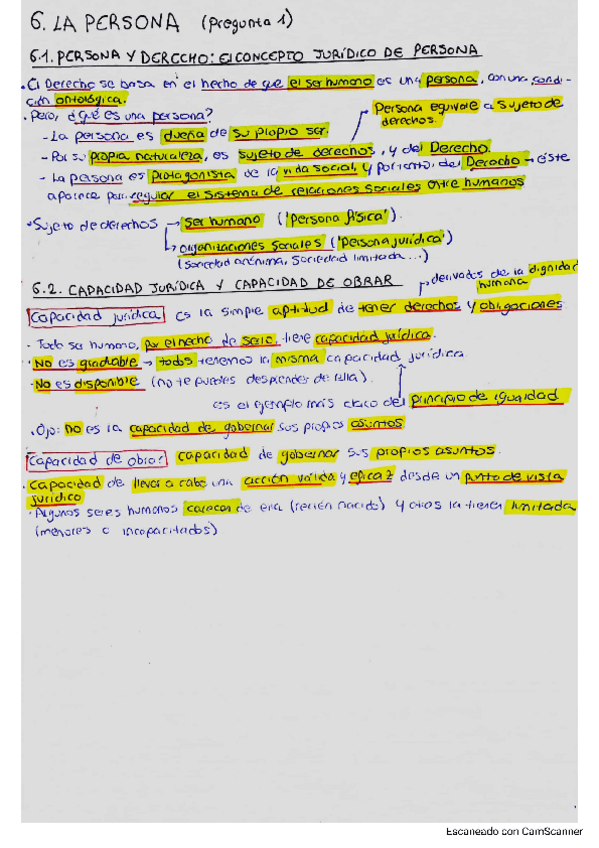 6. LA PERSONA (Pregunta 1)
6.1. PERSONA Y DERECHO: El CONCEPTO JURÍDICO DE PERSONA
· El Derecho se basa en el hecho de que el ser humano es una persona, con una condi-
ción ontológica.
· Pero, ¿qué es una persona?
Persona equivale a sujeto de
derechos.
- La persona es dueña de su propio ser.
- Por su propia naturaleza, es sujeto de derechos, y del Derecho.
- La persona es protagonista de la vida social, y por tanto, del Derecho → éste
aparece para regular el sistema de relaciones sociales entre humanos
· Sujeto de derechos → ser humano ('Persona física').
↳ organizaciones sociales ('Persona jurídica')
(sociedad anónima, sociedad limitada...)
6.2. CAPACIDAD JURÍDICA Y CAPACIDAD DE OBRAR
derivados de la dignidad
humana
Capacidad jurídica es la simple aptitud de tener derechos y obligaciones
- Todo ser humano, por el hecho de serlo, tiene capacidad jurídica.
- No es graduable → todos tenemos la misma capacidad jurídica
- No es disponible (no te puedes desprender de ella).
es el ejemplo más claro del principio de igualdad
. Ojo: no es la capacidad de gobernar sus propios asuntos
Capacidad de obrar: capacidad de gobernar sus propios asuntos.
· Capacidad de llevar a cabo una acción válida y eficaz desde un punto de vista
jurídico
· Algunos seres humanos carecen de ella (recién nacido) y otros la tienen limitada
(menores o incapacitados)
Escaneado con CamScanner